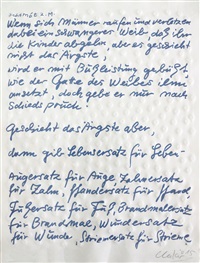 Wenn sich Männer raufen und verletzen
dabei ein schwangeres Weib, daß ihr
die Kinder abgehn, aber es geschieht
nicht das Ärgste,
wird er mit Büßleistung gebüßt
wie der Gatte des Weibes ihm
ansetzt, doch gebe er nur nach
Schiedsspruch!
Geschieht das Ärgste aber,
dann gib Lebensersatz für Leben -
Augersatz für Auge Zahnersatz
für Zahn, Handersatz für Hand,
Fußersatz für Fuß, Brandmalersatz
für Brandmal, Wundersatz
für Wunde, Striemersatz für Strieme